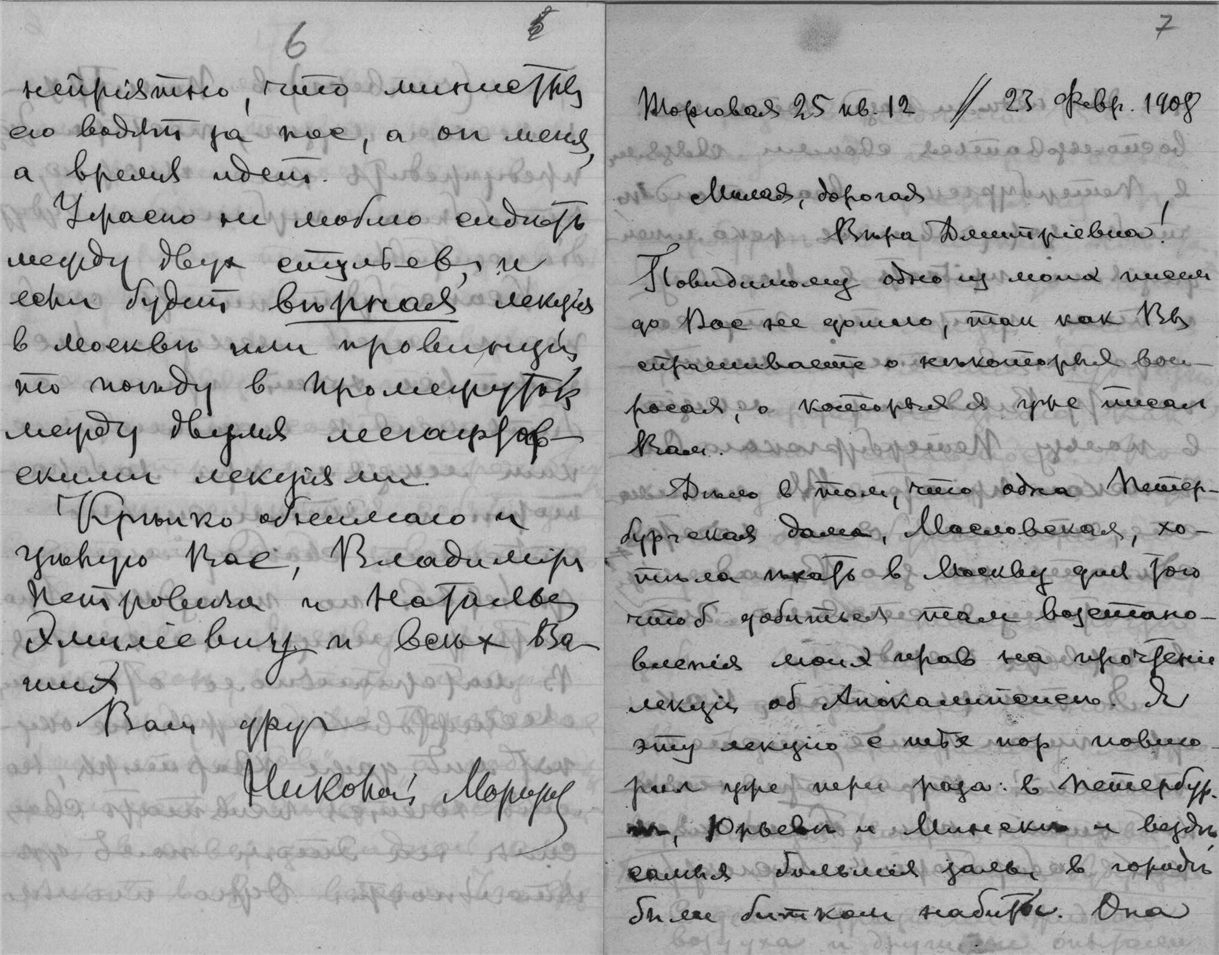 6
непріятно, что министръ
его водятъ за носъ, а он меня,
а время идет.
Ужасно не люблю сидѣть
между двух стульев, и
если будет вѣрная лекція
в Москвѣ или провинціи,
то поѣду в промежуток
между двумя
скими лекціями.
Крѣпко обнимаю и
цѣлую Вас, Владиміра
Петровича и Наталью
Эмиліевну и всѣх Ва-
ших
Ваш друг
Николай Морозов
7
Торговая 25 кв. 12 // 23 Февр. 1908
Милая, дорогая
Вѣра Дмитріевна!
Повидимому одно из моих писем
до Вас не дошло, так как Вы
спрашиваете о нѣкоторых воп-
росах, о которых я уже писал
Вам.
Дѣло в том, что одна Петер-
бургская дама, Масловская, хо-
тѣла ѣхать в Москву для того
чтоб добиться там возстано-
вленія моих прав на прочтеніе
лекціи об Апокалипсисѣ. Я
эту лекцію с тѣх пор повто-
рил уже три раза: в Петербур-
гѣ, Юрьевѣ и Минскѣ и вездѣ
самыя большія залы в городѣ
были битком набиты. Она